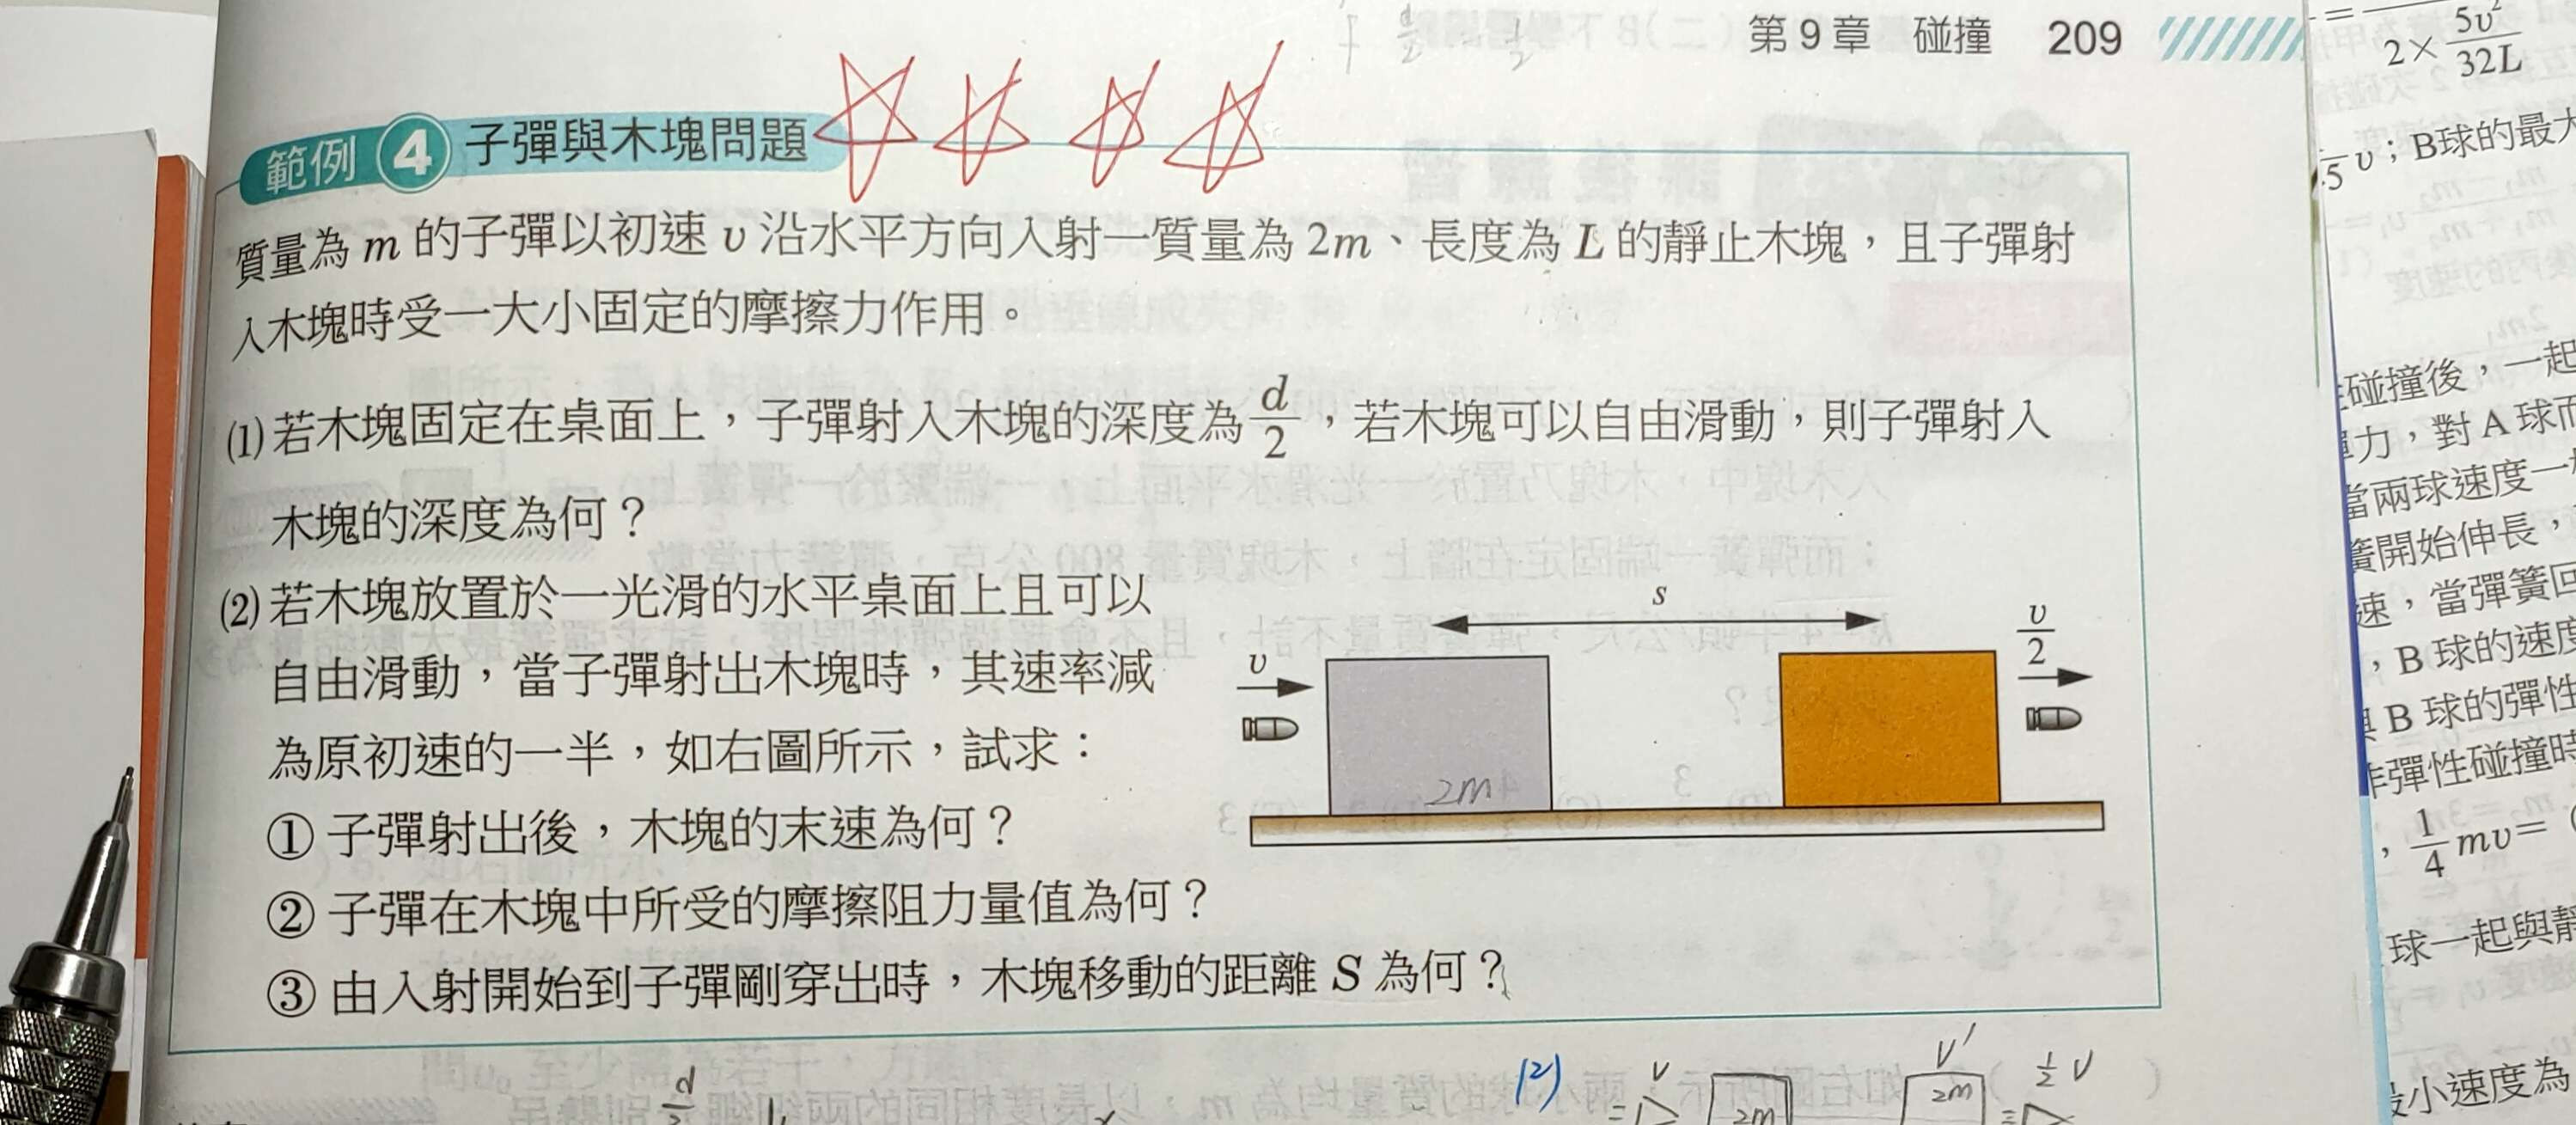 第9章 碰撞 209
範例 4 子彈與木塊問題
質量為 m 的子彈以初速 υ 沿水平方向入射一質量為 2m、長度為 L 的靜止木塊，且子彈射
入木塊時受一大小固定的摩擦力作用。
(1) 若木塊固定在桌面上，子彈射入木塊的深度為 d/2，若木塊可以自由滑動，則子彈射入
木塊的深度為何？
(2) 若木塊放置於一光滑的水平桌面上且可以
自由滑動，當子彈射出木塊時，其速率減
為原初速的一半，如右圖所示，試求：
① 子彈射出後，木塊的末速為何？
② 子彈在木塊中所受的摩擦阻力量值為何？
③ 由入射開始到子彈剛穿出時，木塊移動的距離 S 為何？
s
υ
υ/2
2m
(2)
V
2m
V'
2m
1/2 V
2× 5υ²/32L
υ；B球的最大
碰撞後，一起
力，對 A 球而
當兩球速度一
簧開始伸長，
速，當彈簧回
，B 球的速度
B 球的彈性
彈性碰撞時
，1/4 mυ=
球一起與靜
小速度為